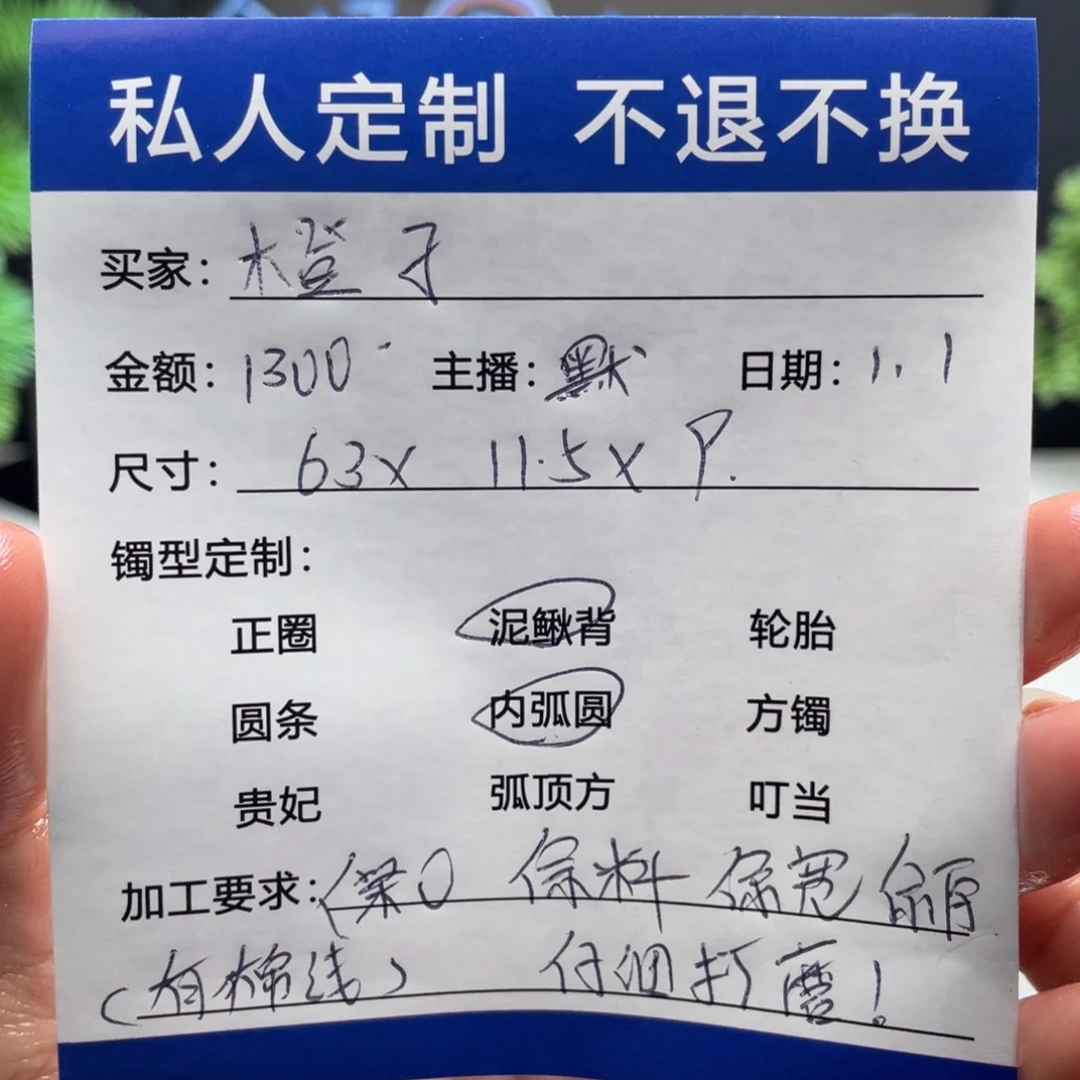 私人定制 不退不换
买家：橙子
金额：1300 主播：默 日期：1.1
尺寸：63x 11.5x P.
镯型定制：
正圈 泥鳅背 轮胎
圆条 内弧圆 方镯
贵妃 弧顶方 叮当
加工要求： 保料 保宽
（有棉线） 仔细打磨！